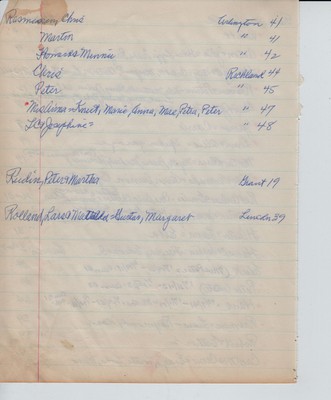 Rasmussen, Chris Lexington 41
Martin " 41
Thomas & Minnie " 42
Chris Richland 44
Peter " 45
Knut, Marie, Anna, Mae, Petra, Peter " 47
Josephine " 48
Rudin, Peter & Martha Grant 19
Rolland, Lars & Gustav, Margaret Lincoln 39